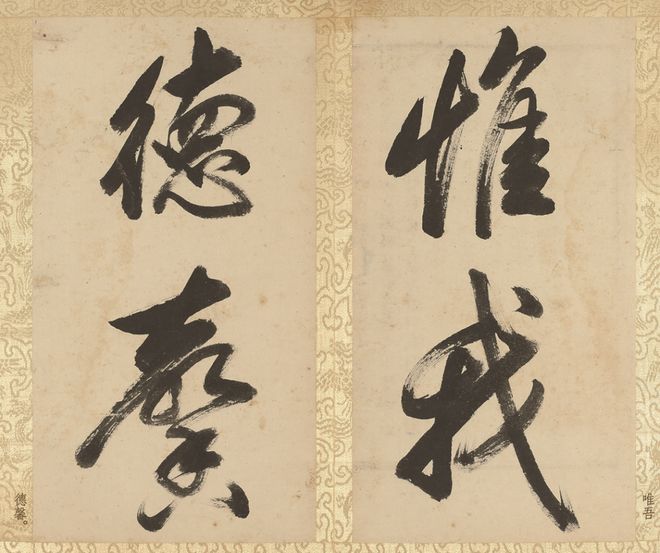 惟我
唯吾
德馨
德馨。